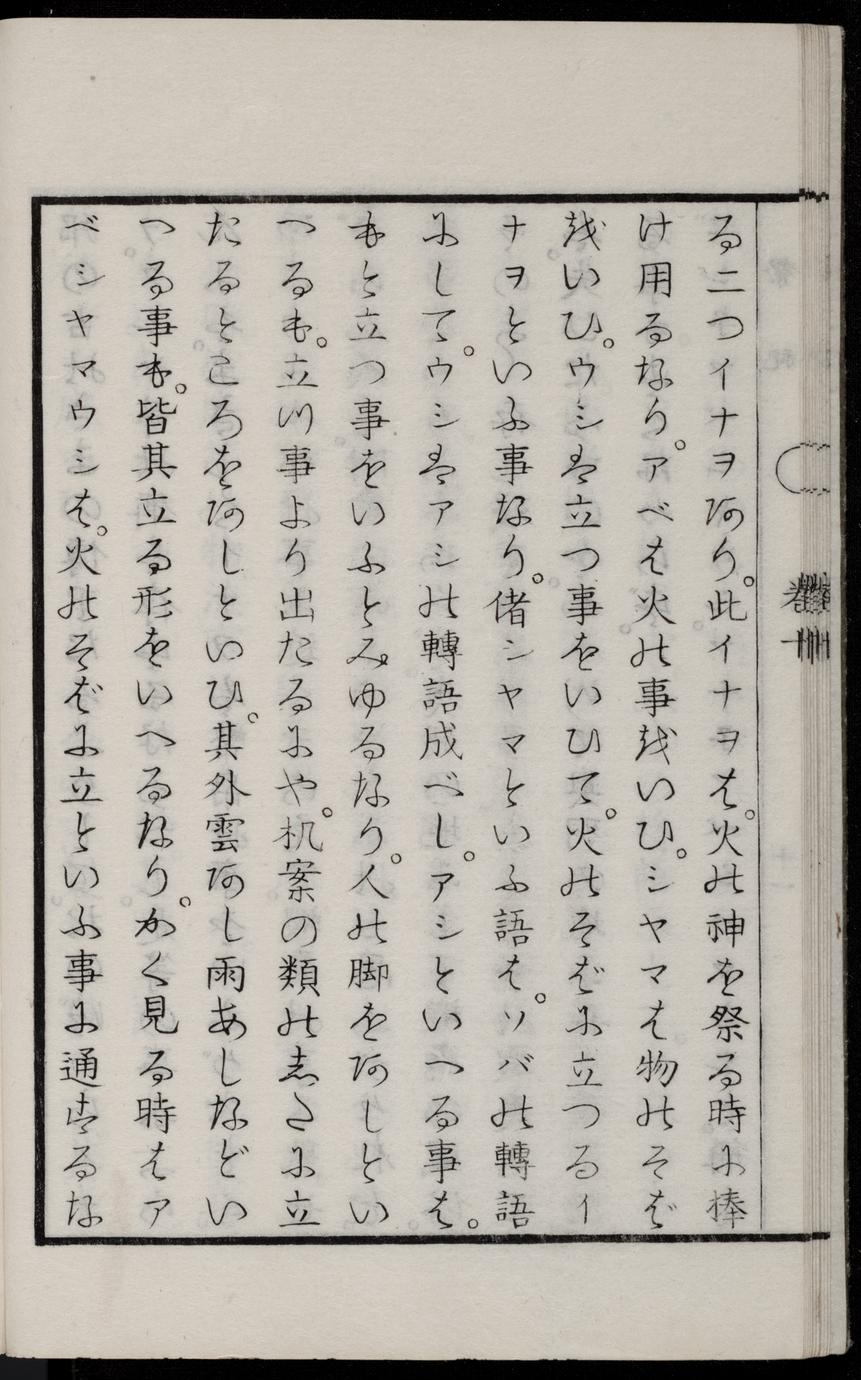 る二つイナヲ阿り。此イナヲは。火の神を祭る時に捧
け用るなり。アベは火の事をいひ。シヤマは物のそば
をいひ。ウシは立つ事をいひて。火のそばに立つるイ
ナヲといふ事なり。偖シヤマといふ語は。ソバの轉語
にして。ウシはアシの轉語成べし。アシといへる事は。
もと立つ事をいふとみゆるなり。人の脚を阿しとい
へるも。立川事より出たるにや。机案の類の志たに立
たるところを阿しといひ。其外雲阿し雨あしなどい
へる事も。皆其立る形をいへるなり。かく見る時はア
ベシヤマウシは。火のそばに立といふ事に通するな
巻十